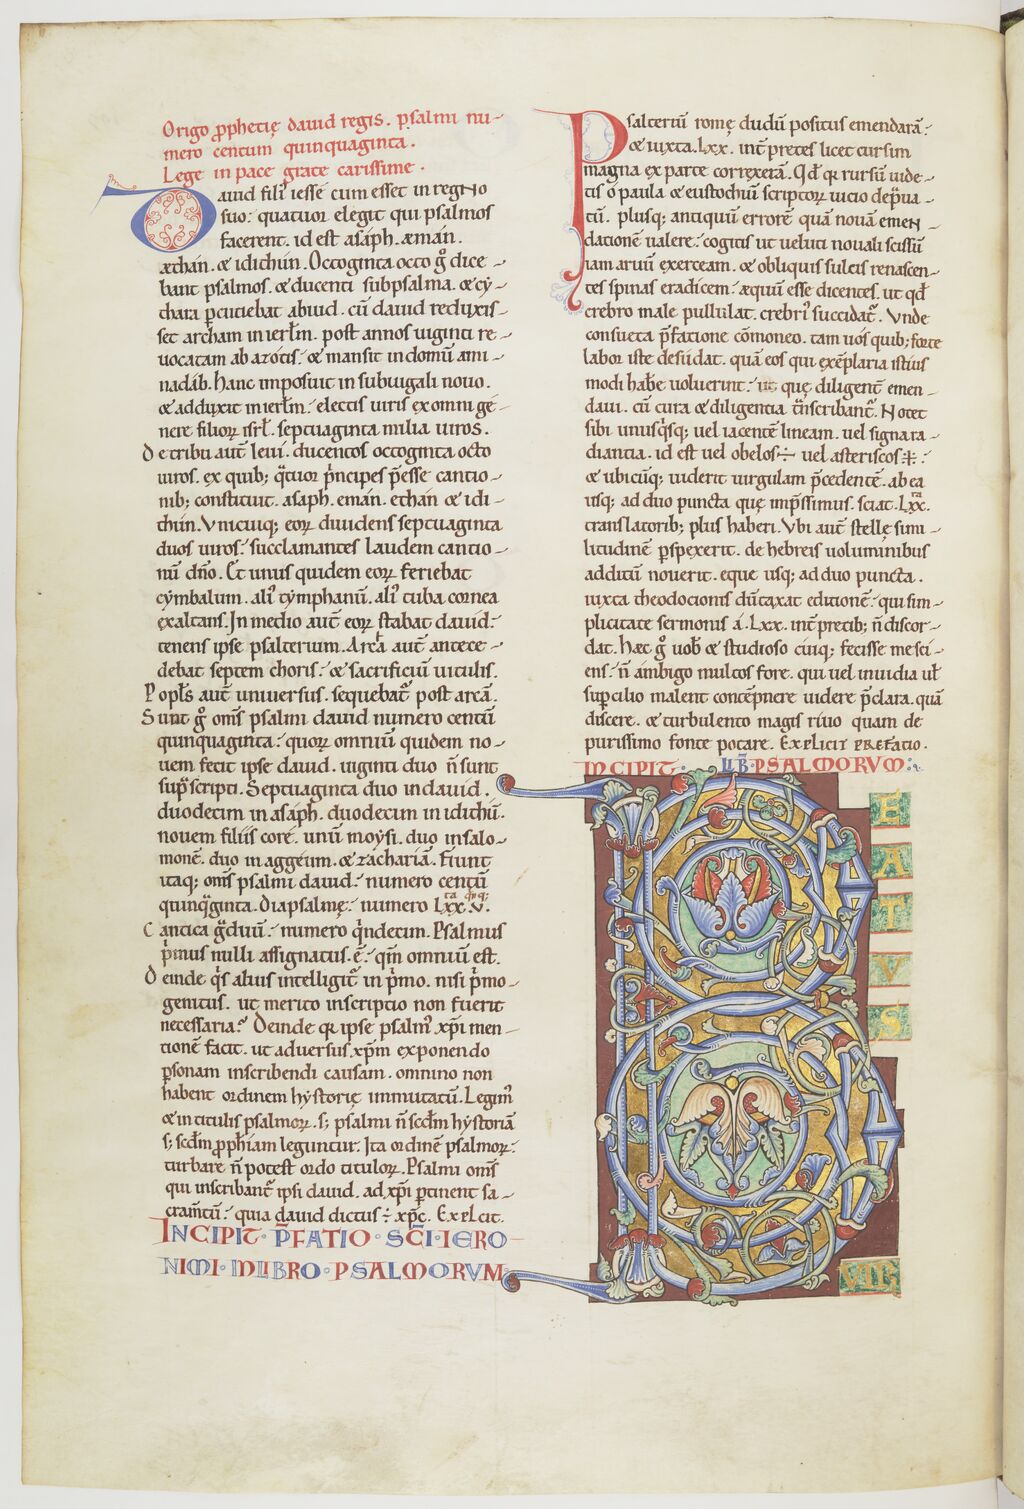 Origo ꝓphetię dauid regis. psalmi nu-
mero centum quinquaginta.
Lege in pace grate carissime.
Dauid filiꝰ iesse cum esset in regno
suo. quatuor elegit qui psalmos
facerent. id est asaph. æman.
æthan. & idithun. Octoginta octo g̊ dice-
bant psalmos. & ducenti subpsalma. & cy-
thara ꝑcutiebat abiud. cū dauid reduxis-
set archam in ierłm. post annos uiginti re-
uocatam ab azotis. & mansit in domū ami-
nadab. Hanc imposuit in subiugali nouo.
& adduxit in ierłm. electis uiris ex omni ge-
nere filioꝝ isrł. septuaginta milia uiros.
De tribu aut̄ leui. ducentos octoginta octo
uiros. ex quib; q̈tuor pͥncipes p̄esse cantio-
nib; constituit. asaph. eman. ethan & idi-
thun. Vnicuiq; eoꝝ diuidens septuaginta
duos uiros. succlamantes laudem cantio-
nū dn̄o. Et unus quidem eoꝝ feriebat
cymbalum. aliꝰ tymphanū. aliꝰ tuba cornea
exaltans. In medio aut̄ eoꝝ stabat dauid.
tenens ipse psalterium. Arca aut̄ antece-
debat septem choris. & sacrificiū uitulis.
Popłs aut̄ uniuersus. sequebat᷑ post arcā.
Sunt g̊ om̄s psalmi dauid numero centū
quinquaginta. quoꝝ omniū quidem no-
uem fecit ipse dauid. uiginti duo n̄ sunt
sup̄scripti. Septuaginta duo in dauid.
duodecim in asaph. duodecim in idithū.
nouem filiis core. unū moysi. duo in salo-
monē. duo in aggeum. & zachariā. Fiunt
itaq; om̄s psalmi dauid. numero centū
quinq̈ginta. Diapsalmę. numero Lxx.v.
Cantica g̈duū. numero q̇ndecim. Psalmus
pͥmus nulli assignatus. ē. qm̄ omniū est.
Deinde q̇s alius intelligit᷑ in pͥmo. nisi pͥmo-
genitus. ut merito inscriptio non fuerit
necessaria. Deinde qꝫ ipse psalmꝰ xp̄i men-
tionē facit. ut aduersus. xp̄m exponendo
ꝑsonam inscribendi causam. omnino non
habent ordinem hystorię immutatū. Legimꝰ
& in titulis psalmoꝝ. s; psalmi n̄ scd̄m hystoriā
s; scd̄m ꝓphiam leguntur. Ita ordinē psalmoꝝ
turbare n̄ potest ordo tituloꝝ. Psalmi om̄s
qui inscribant᷑ ipsi dauid. ad xp̄i ꝑtinent sa-
cram̄tū. quia dauid dictus ÷ xp̄c. Explicit.
INCIPIT PF̄ATIO SC̄I IERO
NIMI IN LIBRO PSALMORVM
Psalteriū romę dudū positus emendarā.
& iuxta. Lxx. int̄pretes licet cursim
magna ex parte correxerā. Qd̄ qꝫ rursū uide-
tis o paula & eustochiū scriptoꝝ uicio dep̄ua-
tū. plusq; antiquū errorē quā nouā emen-
dationē ualere. cogitis ut ueluti nouali scissū
iam aruū exerceam. & obliquis sulcis renascen-
tes spinas eradicem. æquū esse dicentes. ut qd̄
crebro male pullulat. crebriꝰ succidat᷑. Vnde
consueta p̄fatione cōmoneo. tam uos quib; forte
labor iste desudat. quā eos qui exēplaria istius
modi hab̄e uoluerint. ut quę diligent̄ emen-
daui. cū cura & diligentia t̄nscribant᷑. Notet
sibi unusq̇sq; uel iacentē lineam. uel signa ra-
diantia. id est uel obelos ÷ uel asteriscos ※.
& ubicūq; uiderit uirgulam p̄cedentē. ab ea
usq; ad duo puncta quę imp̄ssimus. sciat. Lxx.
translatorib; plus haberi. Vbi aut̄ stellę simi-
litudinē ꝑspexerit. de hebreis uoluminibus
additū nouerit. eque usq; ad duo puncta.
iuxta theodocionis dūtaxat editionē. qui sim-
plicitate sermonis a. Lxx. int̄pretib; n̄ discor-
dat. Hæc g̊ uob̄ & studioso cuiq; fecisse me sci-
ens. n̄ ambigo multos fore. qui uel inuidia uł
suꝑcilio malent contēpnere uidere p̄clara. quā
discere. & turbulento magis riuo quam de
purissimo fonte potare. Explicit prefatio.
INCIPIT LIB̄ PSALMORVM.
BEATVS
VIR